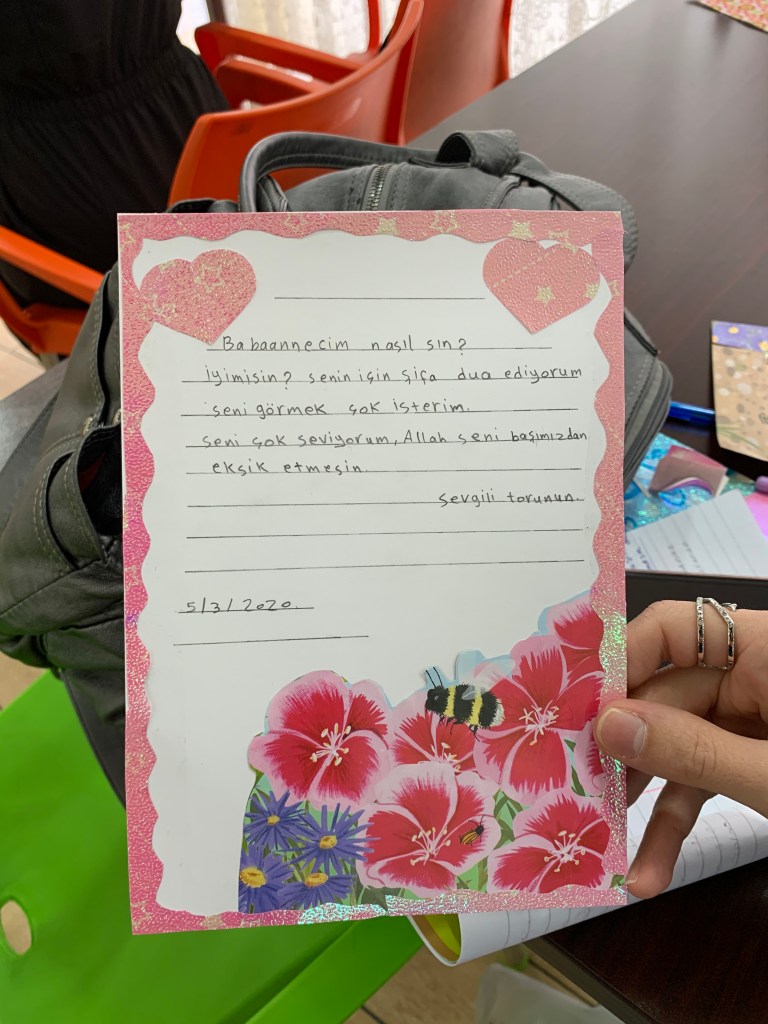 Babaannecim nasıl sın?
İyimisin? senin için şifa dua ediyorum
seni görmek çok isterim.
seni çok seviyorum, Allah seni başımızdan
eksik etmesin.
sevgili torunun.
5/3/2020.